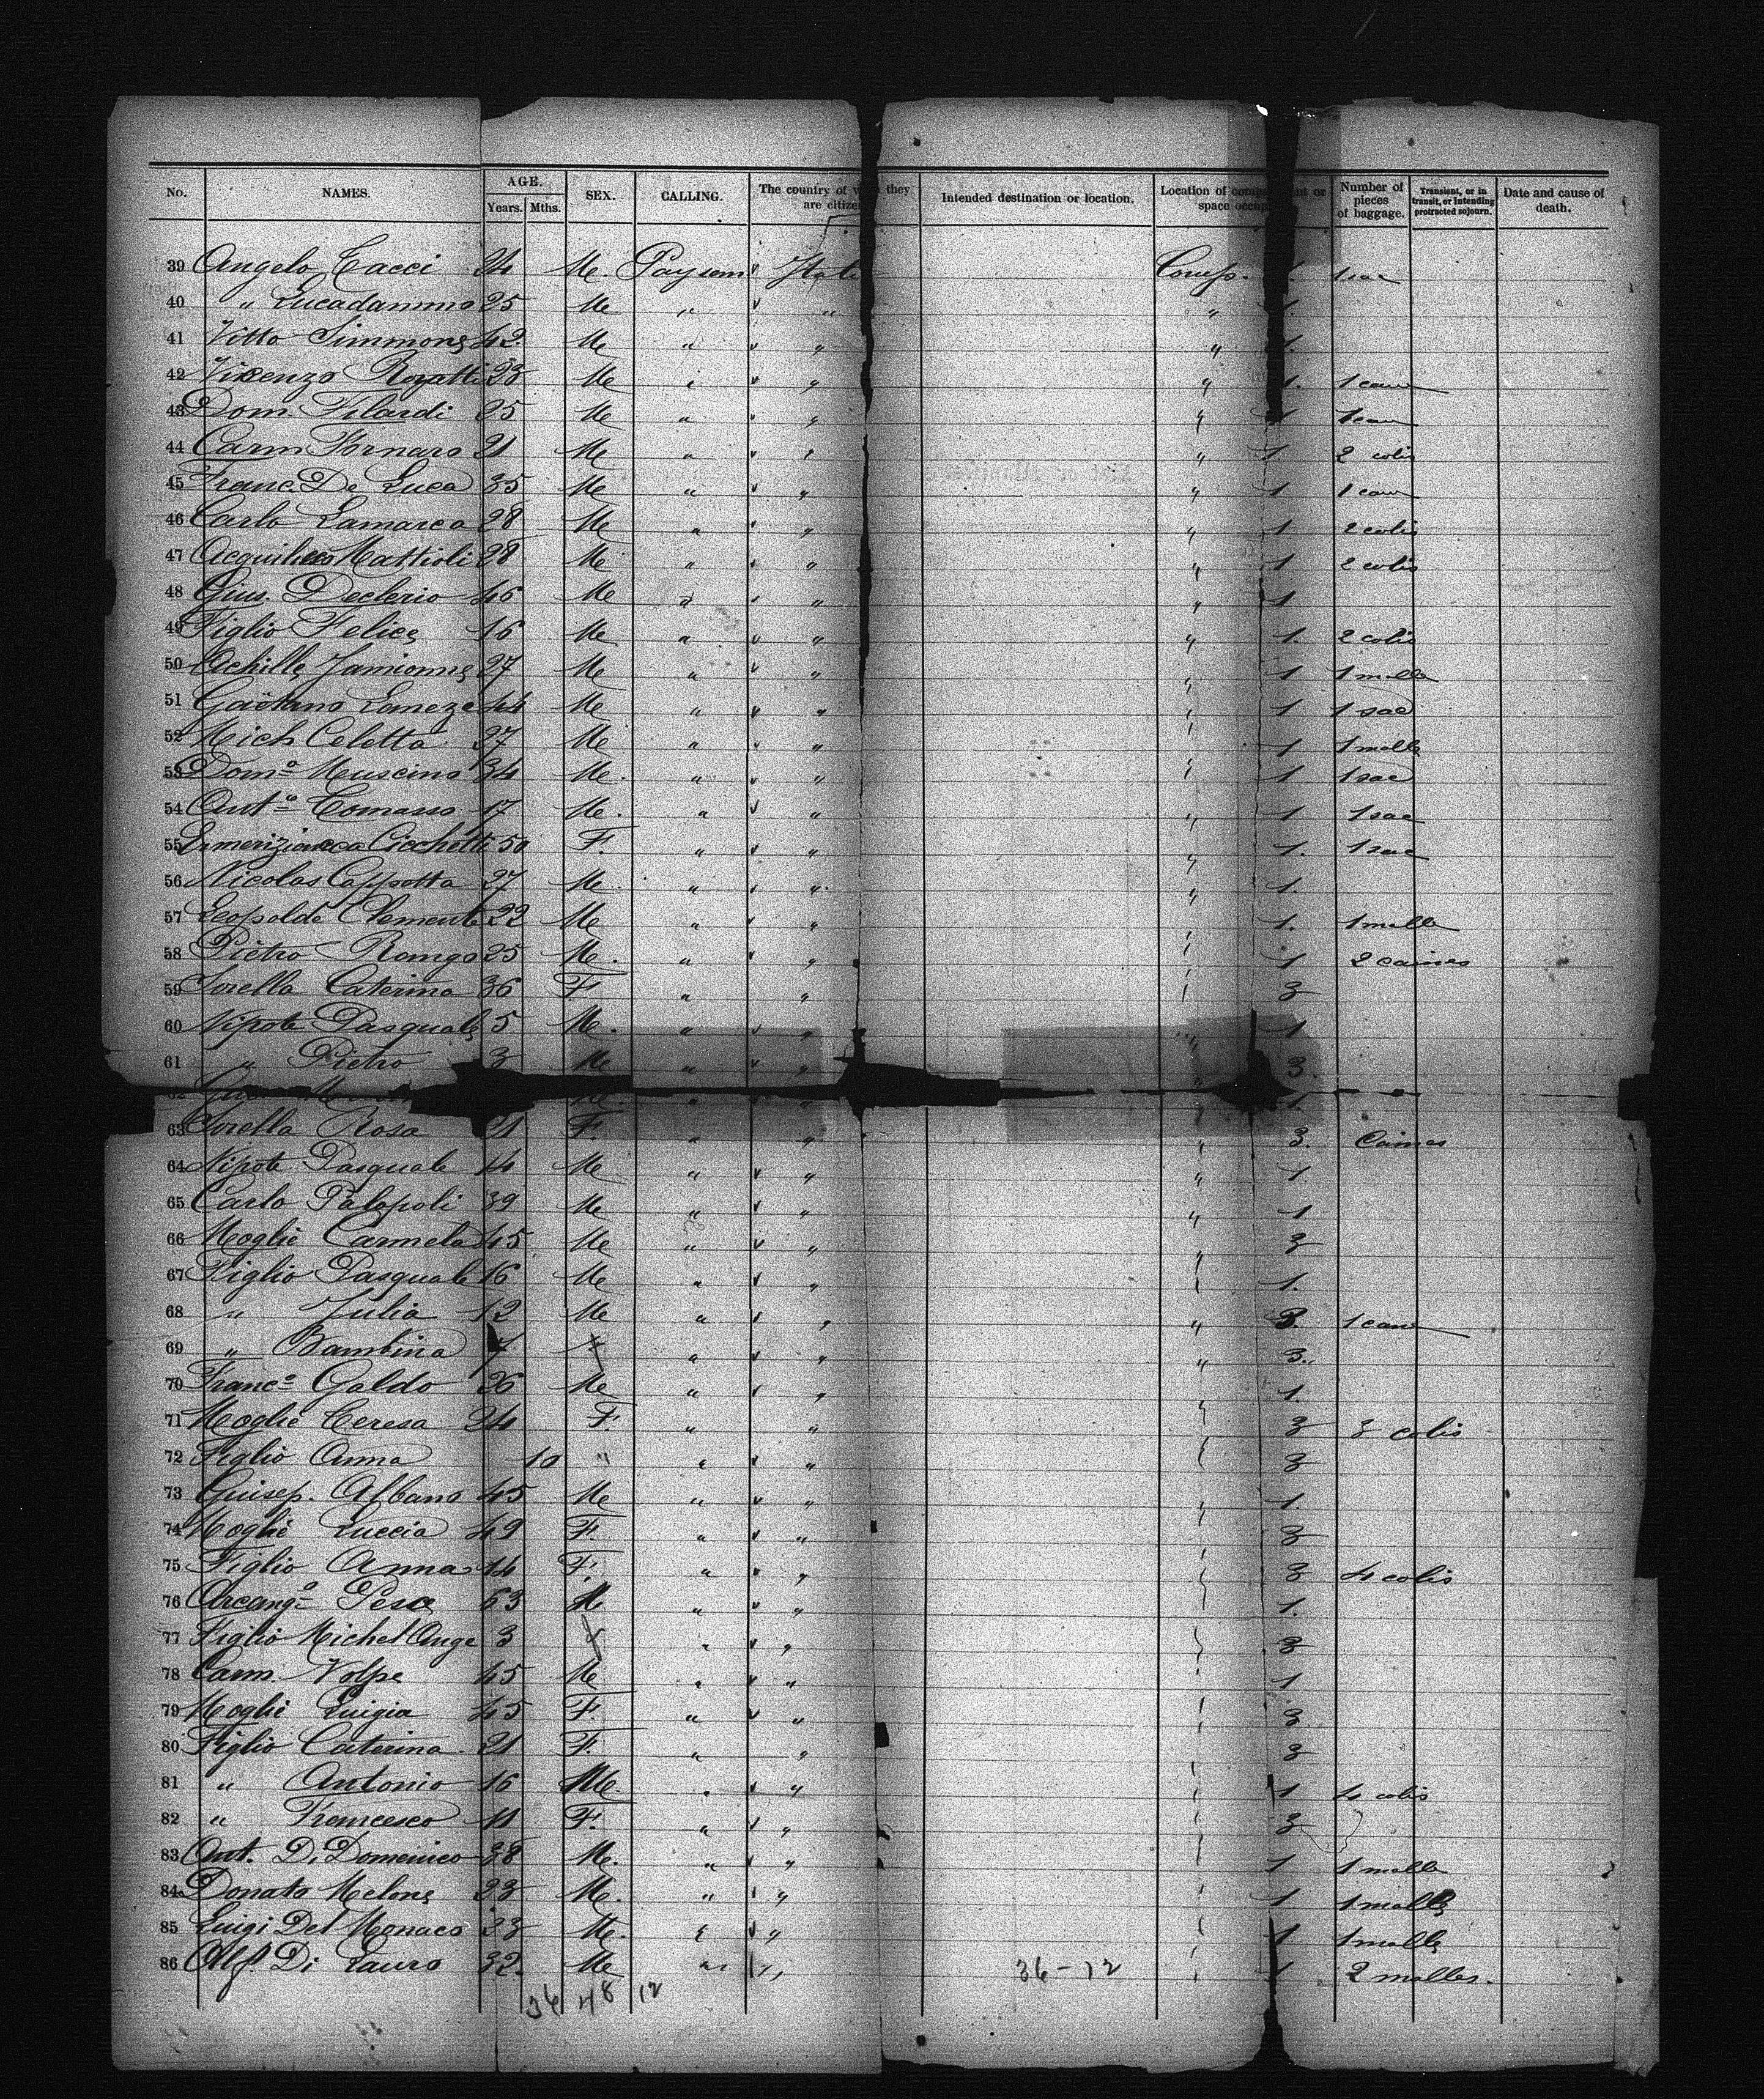 No. NAMES. AGE. Years. Mths. SEX. CALLING. The country of w they are citize Intended destination or location. Location of comp nt or space occup Number of pieces of baggage. Transient, or in transit, or intending protracted sojourn. Date and cause of death.
39 Angelo Cacci 24 Me. Paysem Itali Comp. 1 sac
40 " Lucadammo 25 Me " " " 1.
41 Vitto Simmone 42 Me " " " 1.
42 Vicenzo Rozatti 23 Me " " " 1. 1 caisse
43 Dom. Filardi 25 Me " " " 1 1 caisse
44 Carm Fornaro 21 Me " " " 1. 2 colis
45 Franc. De Luca 35 Me " " " 1 1 caisse
46 Carlo Lamarca 28 Me " " " 1 2 colis
47 Mattioli 28 Me " " " 1 2 colis
48 Gius. Declerio 46 Me " " " 1
49 Figlio Felice 16 Me " " " 1. 2 colis
50 Achille Jamionne 27 Me " " " 1 1 malle
51 Gaëtano 44 Me " " " 1 1 sac
52 Mich Celetta 27 Me " " " 1 1 malle
53 Domº Muscino 34 Me. " " " 1 1 sac
54 Antº Comasso 17 Me. " " " 1 1 sac
55 Cicchetti 50 F. " " " 1. 1 sac
56 Nicolas Cappetta 27 Me. " " " 1.
57 Leopoldo Clemente 22 Me " " " 1. 1 malle
58 Pietro Romgo 25 Me. " " " 1 2 caisses
59 Sorella Caterina 36 F " " " 3
60 Nipote Pasquale 5 Me. " " " 1
61 " Pietro 3 Me " " " 3.
62 Me. " " " 1.
63 Sorella Rosa 21 F. " " " 3. Caisses
64 Nipote Pasquale 14 Me " " " 1.
65 Carlo Palopoli 39 Me " " " 1
66 Moglie Carmela 45 Me " " " 3
67 Figlio Pasquale 16 Me " " " 1.
68 " Julia 12 Me " " " 3. 1 caisse
69 " Bambina 7 f " " " 3.
70 Francº Galdo 26 Me " " " 1.
71 Moglie Ceresa 24 F. " " " 3 3 colis
72 Figlio Anna 10 " " " " 3
73 Guisep. Albano 45 Me " " " 1.
74 Moglie Luccia 49 F. " " " 3
75 Figlio Anna 14 F. " " " 3 4 colis
76 Arcangº Pesce 63 M " " " 1.
77 Figlio Michel Ange 3 f " " " 3
78 Carm. Volpe 45 Me " " " 1
79 Moglie Luigia 45 F. " " " 3
80 Figlio Caterina 21 F. " " " 3
81 " Antonio 16 Me. " " " 1 4 colis
82 " Francesco 11 F. " " " 3
83 Ant. Di Domenico 38 Me. " " " 1 1 malle
84 Donato Melone 23 Me. " " " 1 1 malle
85 Luigi Del Monaco 23 Me. " " " 1 1 malle
86 Alf. Di Lauro 32. Me " " " 1 2 malles.
36-12
36 48 12